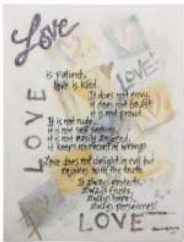 Love
is patient,
love is kind.
LOVE!
It does not envy,
it does not boast,
it is not proud.
It is not rude,
it is not self seeking,
it is not easily angered,
it keeps no record of wrongs.
LOVE
Love does not delight in evil but
rejoices with the truth.
It always protects,
always trusts,
always hopes,
always perseveres!
LOVE